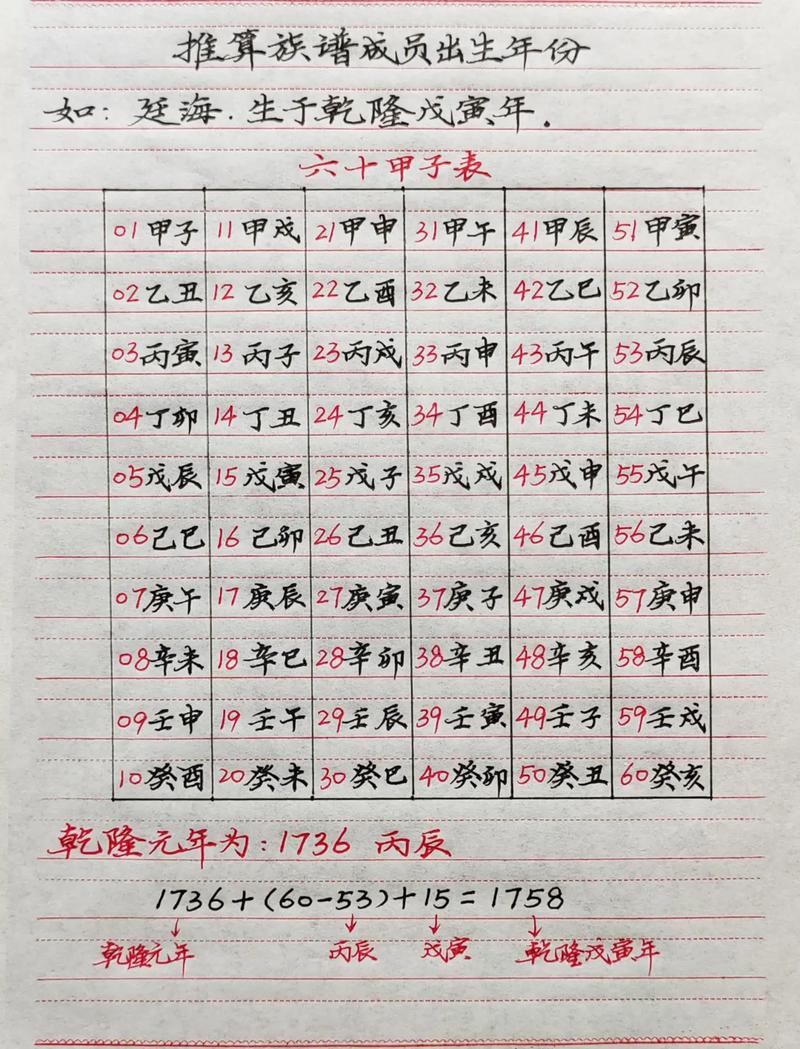 推算族谱成员出生年份
如：廷海.生于乾隆戊寅年.
六十甲子表
01甲子 11甲戌 21甲申 31甲午 41甲辰 51甲寅
02乙丑 12乙亥 22乙酉 32乙未 42乙巳 52乙卯
03丙寅 13丙子 23丙戌 33丙申 43丙午 53丙辰
04丁卯 14丁丑 24丁亥 34丁酉 44丁未 54丁巳
05戊辰 15戊寅 25戊子 35戊戌 45戊申 55戊午
06己巳 16己卯 26己丑 36己亥 46己酉 56己未
07庚午 17庚辰 27庚寅 37庚子 47庚戌 57庚申
08辛未 18辛巳 28辛卯 38辛丑 48辛亥 58辛酉
09壬申 19壬午 29壬辰 39壬寅 49壬子 59壬戌
10癸酉 20癸未 30癸巳 40癸卯 50癸丑 60癸亥
乾隆元年为：1736 丙辰
1736+(60-53)+15=1758
乾隆元年 丙辰 戊寅 乾隆戊寅年